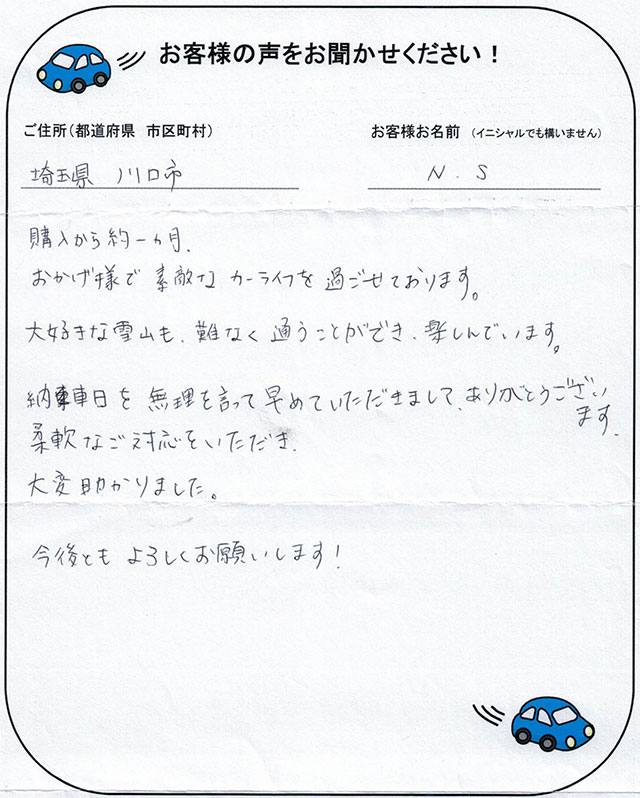 お客様の声をお聞かせください！
ご住所（都道府県　市区町村）
お客様お名前（イニシャルでも構いません）
埼玉県　川口市
N.S
購入から約一ヵ月、
おかげ様で素敵なカーライフを過ごせております。
大好きな雪山も、難なく通うことができ、楽しんでいます。
納車日を無理を言って早めていただきまして、ありがとうござい
ます。
柔軟なご対応をいただき、
大変助かりました。
今後ともよろしくお願いします！